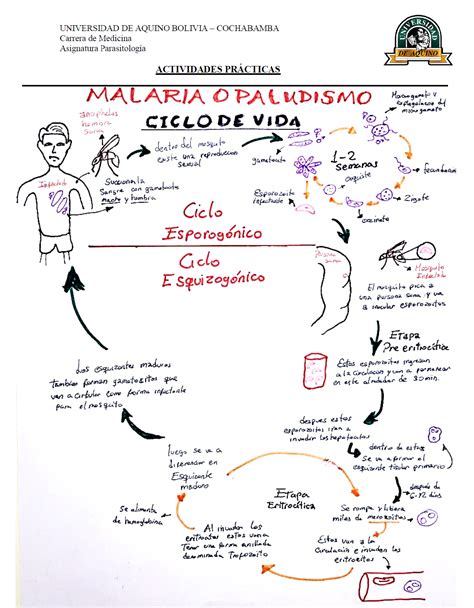 UNIVERSIDAD DE AQUINO BOLIVIA – COCHABAMBA
Carrera de Medicina
Asignatura Parasitología
UNIVERSIDAD
DE AQUINO
ACTIVIDADES PRÁCTICAS
MALARIA O PALUDISMO
CICLO DE VIDA
anopheles
hembra
Sana
Infectado
Succiona la
Sangre con gametocito
macho y hembra
dentro del mosquito
existe una reproduccion
sexual
gametocito
Macrogameto y
exflagelacion del
microgameto
1-2
semanas
fecundacion
ooquiste
Zigote
oocinete
Esporozoito
infectante
Ciclo
Esporogónico
Ciclo
Esquizogónico
Persona
Sana
Mosquito
Infectado
El mosquito pica a
una persona sana y va
a inocular esporozoitos
Etapa
Pre eritrocítica
Estos esporozoitos ingresan
a la circulacion y van a permanecer
en este alrededor de 30 min.
despues estos
esporozoitos iran a
invadir los hepatocitos
dentro de estos
Se va a formar el
esquizonte tisular primario
después de
6-12 dias
Se rompe y libera
miles de merozoitos
Estos van a la
circulación e invaden los
eritrocitos
Etapa
Eritrocítica
Al invadir los
eritrocitos estos van a
Tener una forma anillada
denominada Trofozoito
Se alimenta
de hemoglobina
luego se va a
diferenciar en
Esquizonte
maduro
Los esquizontes maduros
tambien forman gametocitos que
van a circular como forma infectante
para el mosquito